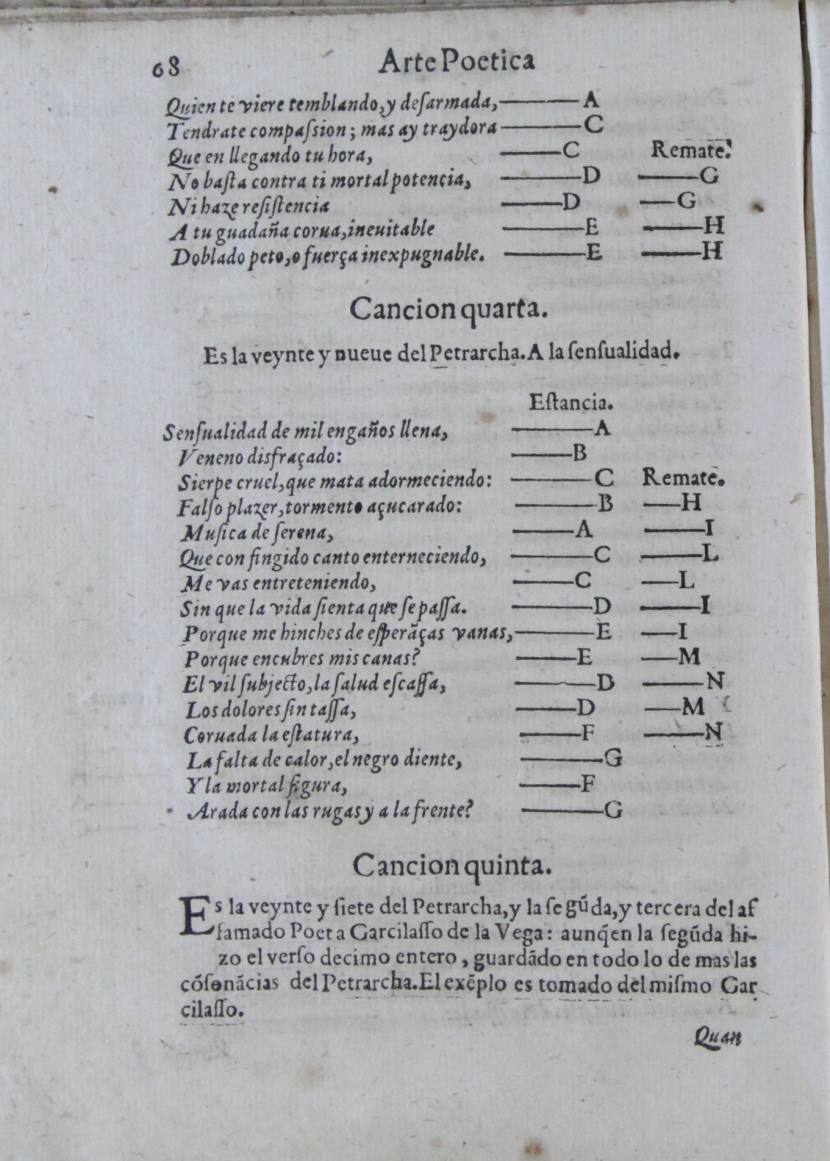 68 Arte Poetica
Quien te viere temblando, y desarmada, ——— A
Tendrate compaſsion; mas ay traydora ——— C
Que en llegando tu hora, ——— C Remate.
No baſta contra ti mortal potencia, ——— D ——— G
Ni haze reſiſtencia ——— D —— G
A tu guadaña corua, ineuitable ——— E ——— H
Doblado peto, o fuerça inexpugnable. ——— E ——— H
Cancion quarta.
Es la veynte y nueue del Petrarcha. A la ſenſualidad.
Eſtancia.
Senſualidad de mil engaños llena, ——— A
Veneno disfraçado: ——— B
Sierpe cruel, que mata adormeciendo: ——— C Remate.
Falſo plazer, tormento açucarado: ——— B —— H
Muſica de ſerena, ——— A ——— I
Que con fingido canto enterneciendo, ——— C ——— L
Me vas entreteniendo, ——— C —— L
Sin que la vida ſienta que ſe paſſa. ——— D ——— I
Porque me hinches de eſperãças vanas, ——— E —— I
Porque encubres mis canas? ——— E —— M
El vil ſubjecto, la ſalud eſcaſſa, ——— D ——— N
Los dolores ſin taſſa, ——— D —— M
Coruada la eſtatura, ——— F ——— N
La falta de calor, el negro diente, ——— G
Y la mortal figura, ——— F
Arada con las rugas y a la frente? ——— G
Cancion quinta.
Es la veynte y ſiete del Petrarcha, y la ſegũda, y tercera del af
famado Poeta Garcilaſſo de la Vega: aunq̃ en la ſegũda hi-
zo el verſo decimo entero, guardãdo en todo lo de mas las
cõſonãcias del Petrarcha. El exẽplo es tomado del miſmo Gar
cilaſſo.
Quan